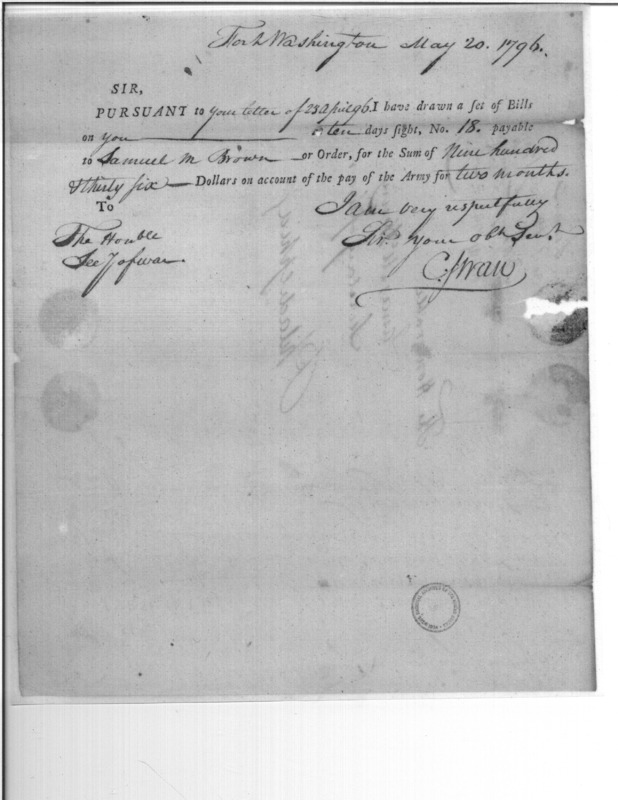 Fort Washington May 20. 1796.
SIR,
PURSUANT to your letter of 23 april 96. I have drawn a set of Bills
on you at ten days sight, No. 18. payable
to Samuel M Brown or Order, for the Sum of Nine hundred
& thirty six Dollars on account of the pay of the Army for two months.
To
I am very respectfully
The Honble
Sir, your obt Servt
Secy of war
C. Swan